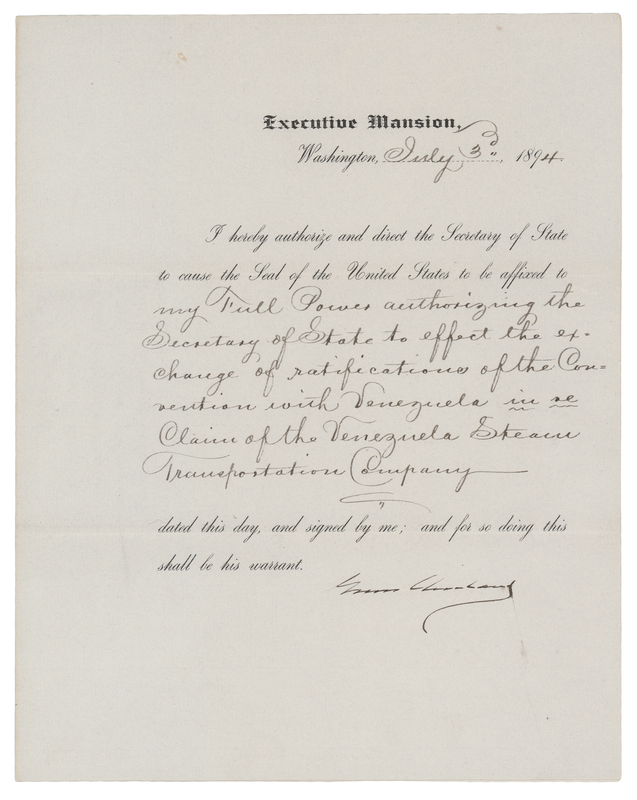 Executive Mansion,
Washington, July 3d, 1894.
I hereby authorize and direct the Secretary of State
to cause the Seal of the United States to be affixed to
my Full Power authorizing the
Secretary of State to effect the ex-
change of ratifications of the Con-
vention with Venezuela in re
Claim of the Venezuela Steam
Transportation Company
dated this day, and signed by me; and for so doing this
shall be his warrant.
Grover Cleveland